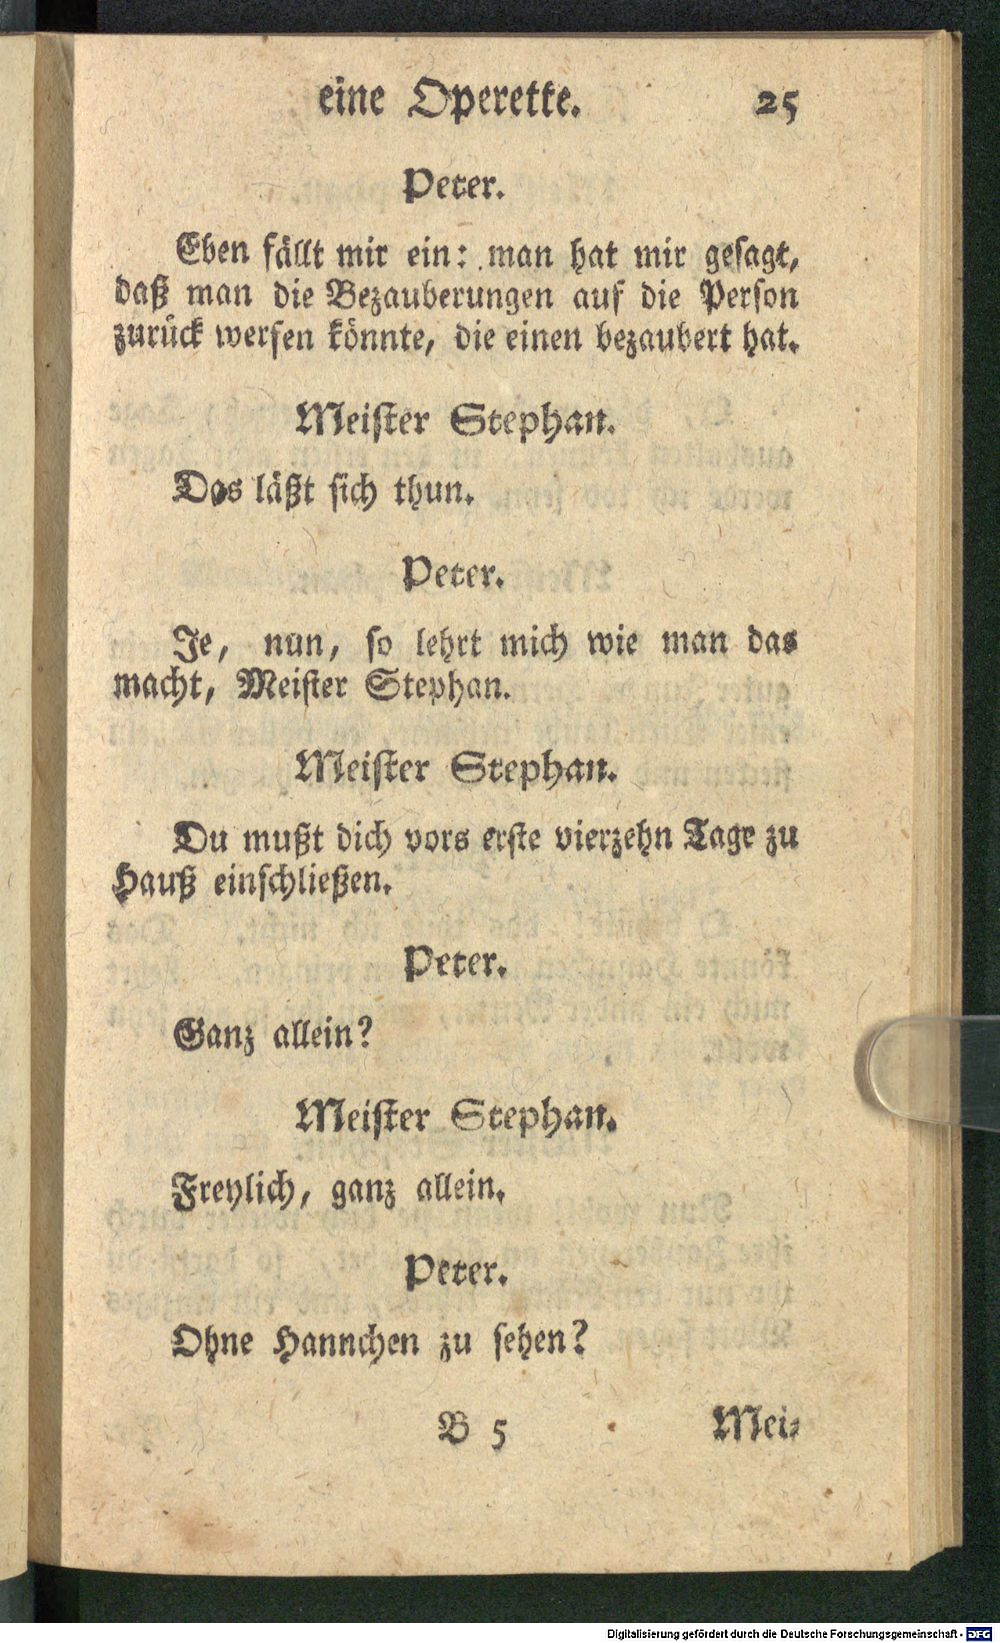 eine Operette. 25
Peter.
Eben fällt mir ein: man hat mir gesagt,
daß man die Bezauberungen auf die Person
zurück werfen könnte, die einen bezaubert hat.
Meister Stephan.
Das läßt sich thun.
Peter.
Je, nun, so lehrt mich wie man das
macht, Meister Stephan.
Meister Stephan.
Du mußt dich vors erste vierzehn Tage zu
Hauß einschließen.
Peter.
Ganz allein?
Meister Stephan.
Freylich, ganz allein.
Peter.
Ohne Hannchen zu sehen?
B 5 Mei-
Digitalisierung gefördert durch die Deutsche Forschungsgemeinschaft - DFG